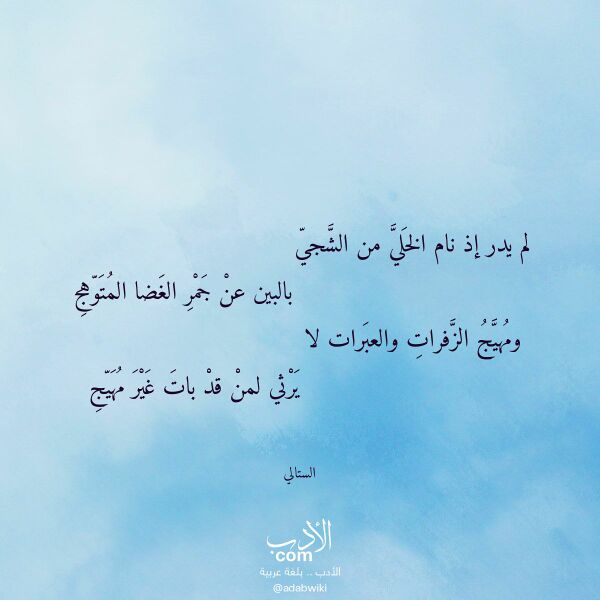 لم يدر إذ نام الخَليَّ من الشَّجيّ
بالبين عنْ جَمْرِ الغَضا المُتَوّهجِ
ومُهيَّجُ الزَّفراتِ والعبَرات لا
يَرْثي لمنْ قدْ باتَ غَيْرَ مُهَيّجِ
الستالي
الأدب
com
الأدب .. بلغة عربية
@adabwiki